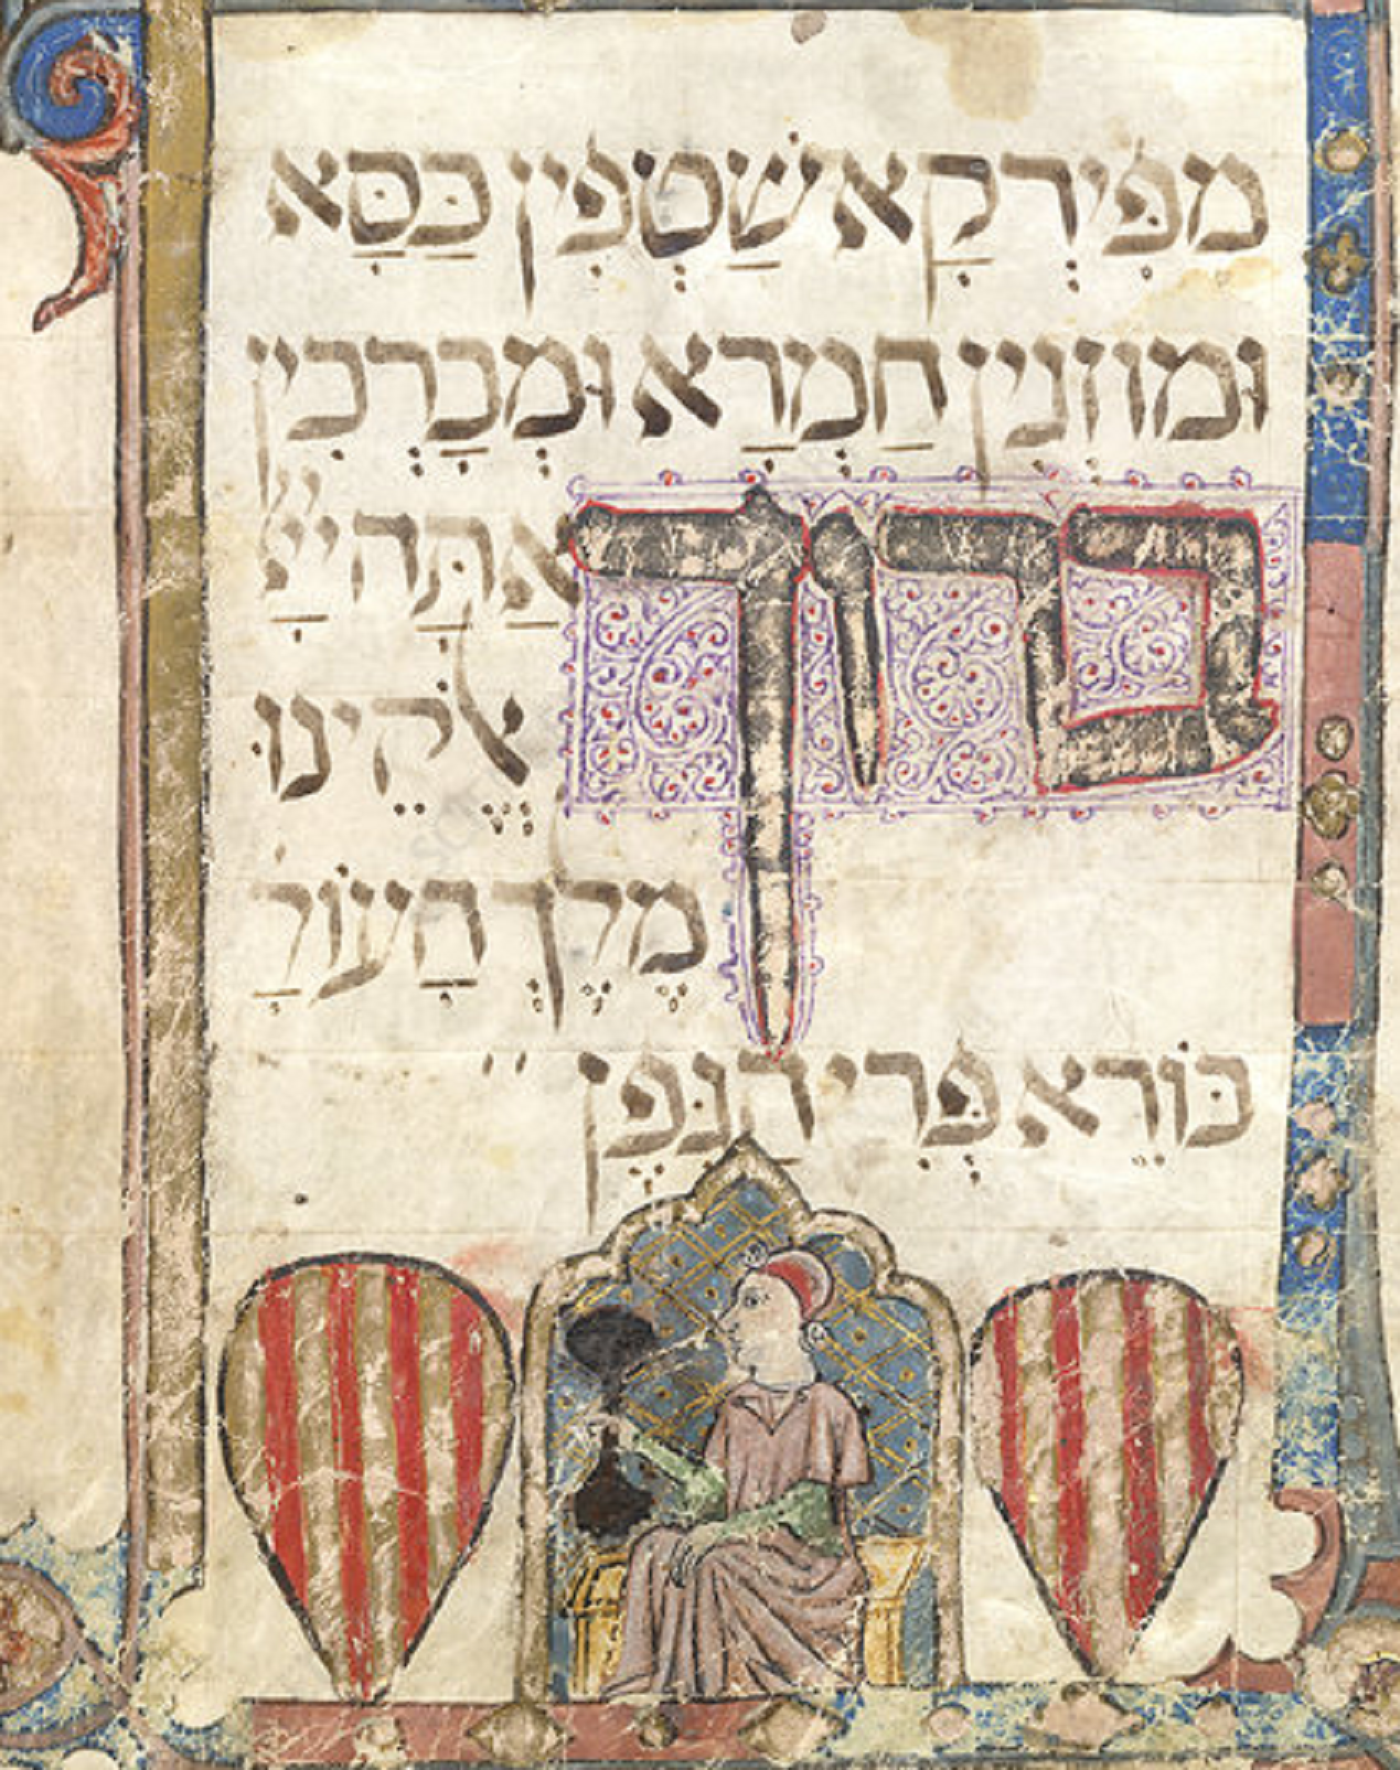 מִפִּירְקָא שַׁטְפִין כַּסָּא
וּמוזְגִין חַמְרָא וּמְבָרְכִין
ברוך אַתָּה יְיָ
אֱלֹהֵינוּ
מֶלֶךְ הָעוֹלָ
בּוֹרֵא פְּרִי הַגֶּפֶן